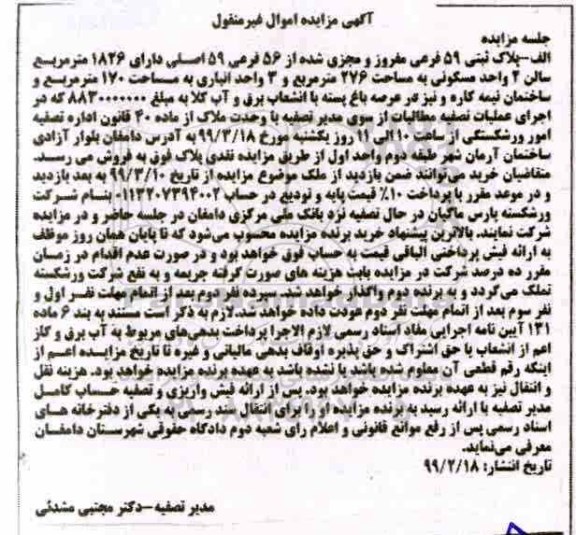 آگهی مزایده اموال غیرمنقول
جلسه مزایده
الف-پلاک ثبتی ۵۹ فرعی مفروز و مجزی شده از ۵۶ فرعی ۵۹ اصلی دارای ۱۸۲۶ مترمربع
سالن ۲ واحد مسکونی به مساحت ۲۷۶ مترمربع و ۳ واحد انباری به مساحت ۱۷۰ مترمربع و
ساختمان نیمه کاره و نیز در عرصه باغ پسته با انشعاب برق و آب کلا به مبلغ ۸۸۳۰۰۰۰۰۰۰ که در
اجرای عملیات تصفیه مطالبات از سوی مدیر تصفیه با وحدت ملاک از ماده ۴۰ قانون اداره تصفیه
امور ورشکستگی از ساعت ۱۰ الی ۱۱ روز یکشنبه مورخ ۹۹/۳/۱۸ به آدرس دامغان بلوار آزادی
ساختمان آرمان شهر طبقه دوم واحد اول از طریق مزایده نقدی پلاک فوق به فروش می رسد.
متقاضیان خرید می‌توانند ضمن بازدید از ملک موضوع مزایده از تاریخ ۹۹/۳/۱۰ به بعد بازدید
و در موعد مقرر با پرداخت ۱۰٪ قیمت پایه و تودیع در حساب ۱۱۳۲۰۷۳۹۴۰۰۲ بنام شرکت
ورشکسته پارس ماکیان در حال تصفیه نزد بانک ملی مرکزی دامغان در جلسه حاضر و در مزایده
شرکت نمایند. بالاترین پیشنهاد خرید برنده مزایده محسوب می‌شود که تا پایان همان روز موظف
به ارائه فیش پرداختی الباقی قیمت به حساب فوق خواهد بود و در صورت عدم اقدام در زمان
مقرر ده درصد شرکت در مزایده بابت هزینه های صورت گرفته جریمه و به نفع شرکت ورشکسته
تملک می‌گردد و به برنده دوم واگذار خواهد شد. سپرده نفر دوم بعد از اتمام مهلت نفر اول و
نفر سوم بعد از اتمام مهلت نفر دوم عودت داده خواهد شد. لازم به ذکر است مستند به بند ۶ ماده
۱۳۱ آیین نامه اجرایی مفاد اسناد رسمی لازم الاجرا پرداخت بدهی‌های مربوط به آب برق و گاز
اعم از انشعاب یا حق اشتراک و حق پذیره اوقاف بدهی مالیاتی و غیره تا تاریخ مزایده اعم از
اینکه رقم قطعی آن معلوم شده باشد یا نشده باشد به عهده برنده مزایده خواهد بود. هزینه نقل
و انتقال نیز به عهده برنده مزایده خواهد بود. پس از ارائه فیش واریزی و تصفیه حساب کامل
مدیر تصفیه با ارائه رسید به برنده مزایده او را برای انتقال سند رسمی به یکی از دفترخانه های
اسناد رسمی پس از رفع موانع قانونی و اعلام رای شعبه دوم دادگاه حقوقی شهرستان دامغان
معرفی می‌نماید.
تاریخ انتشار: ۹۹/۲/۱۸
مدیر تصفیه-دکتر مجتبی مشدئی